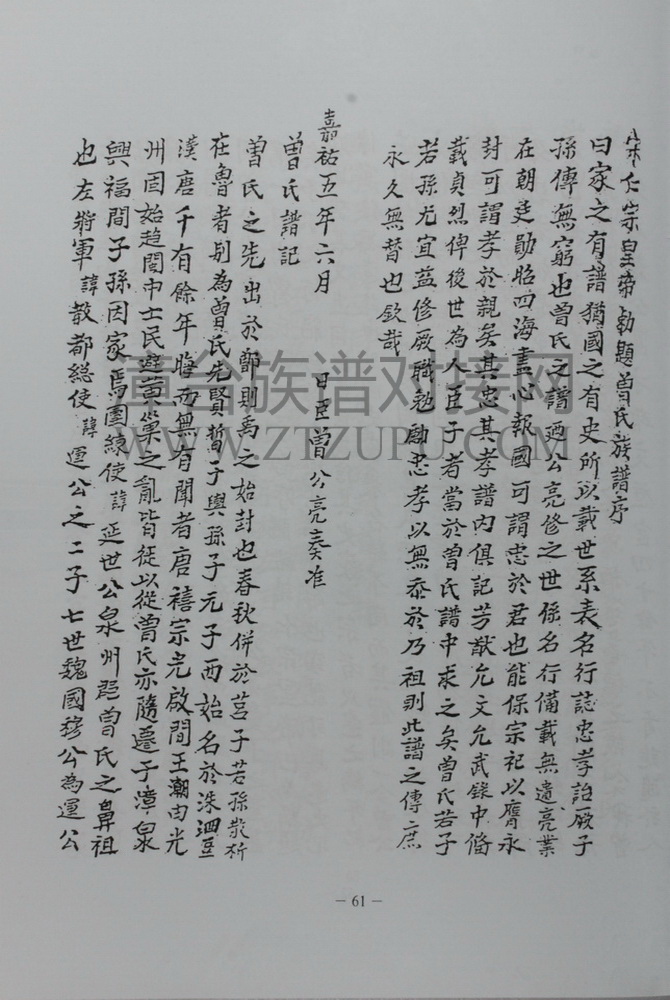 宋仁宗皇帝勅題曾氏族譜序
曰家之有譜猶國之有史所以載世系表名行誌忠孝詒厥子
孫傳無窮也曾氏之譜廼公亮修之世係名行備載無遺亮業
在朝廷勛昭四海盡心報國可謂忠於君也能保宗祀以膺永
封可謂孝於親矣其忠其孝譜內俱記芳猷允文允武錄中脩
載貞烈俾後世為人臣子者當於曾氏譜中求之矣曾氏若子
若孫尤宜益修厥職勉勵忠孝以無忝於乃祖則此譜之傳庶
永久無替也欽哉
嘉祐五年六月 日臣曾公亮奏准
曾氏譜記
曾氏之先出於鄫則禹之始封也春秋併於莒子若孫散析
在魯者別為曾氏先賢晳子輿孫子元子西始名於洙泗亘
漢唐千有餘年晦而無有聞者唐禧宗光啟間王潮由光
州固始趋閩中士民避黃巢之亂皆徒以從曾氏亦隨遷于漳泉
興福間子孫因家焉團練使諱延世公泉州曾氏之鼻祖
也左將軍諱散都總使諱運公之二子七世魏國穆公為運公
漳台族谱对接网
WWW.ZTZUPU.COM
－61－